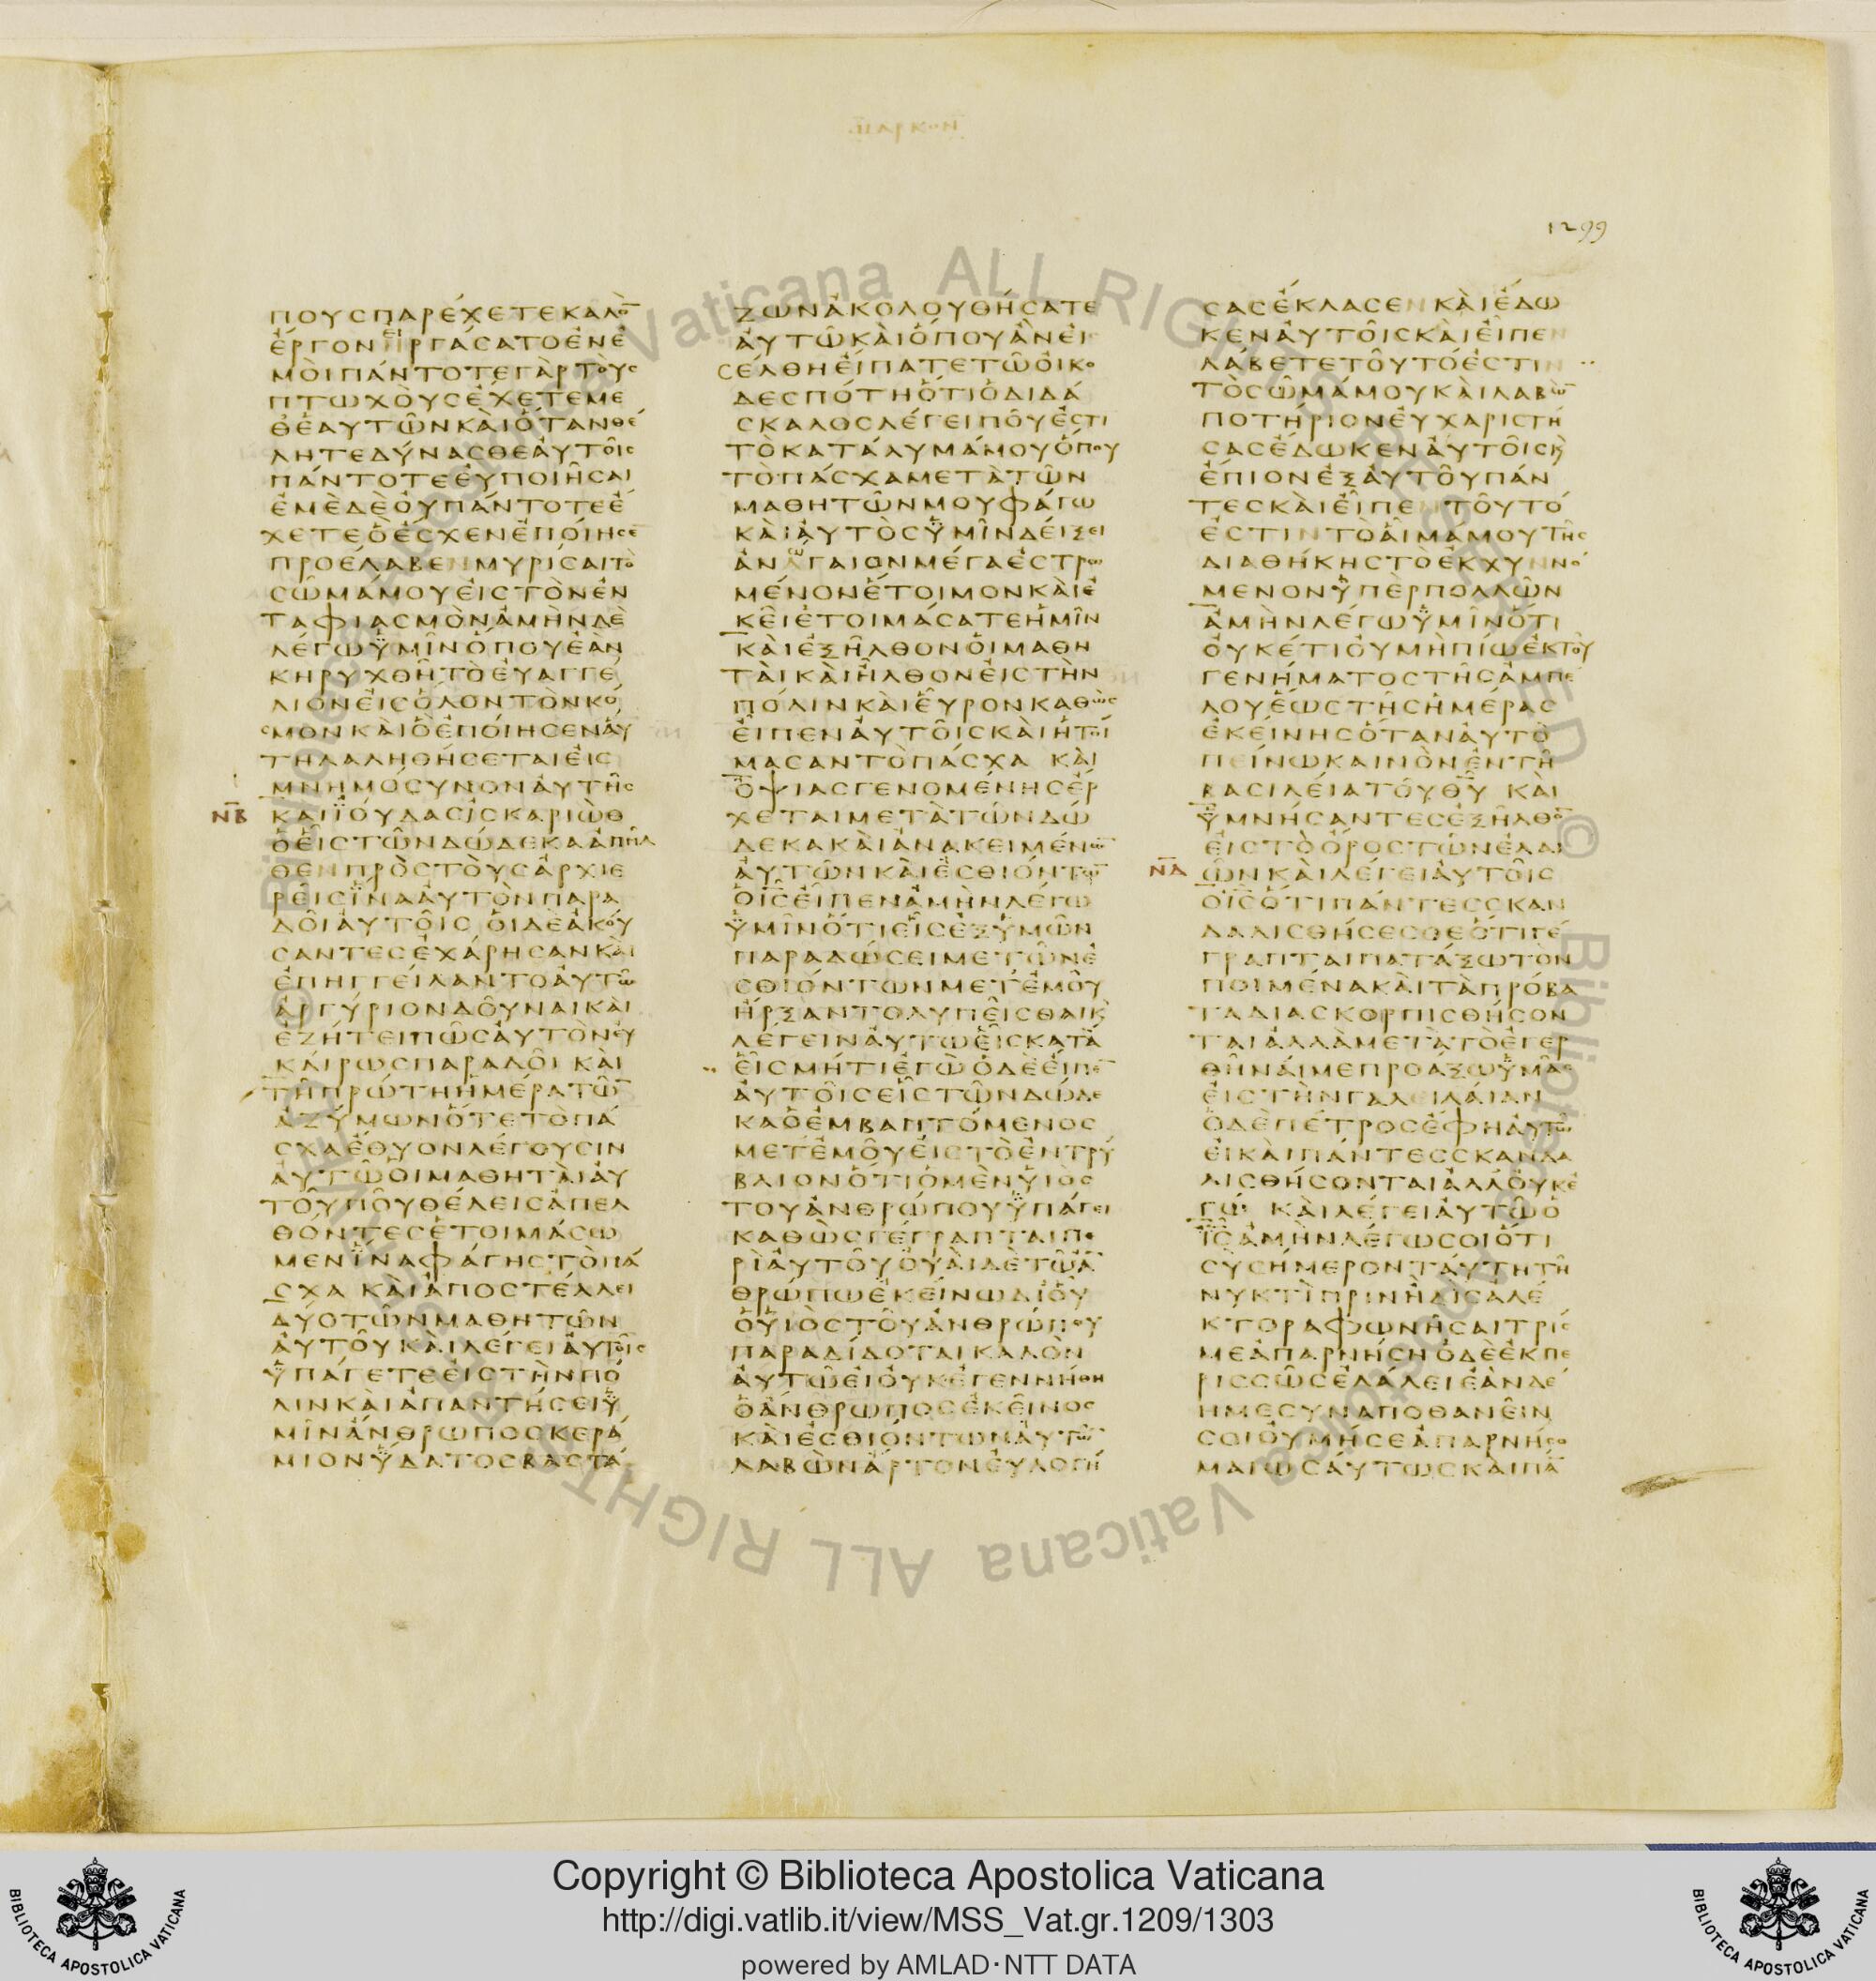 1299
ΠΟΥΣΠΑΡΕΧΕΤΕΚΑΛΟ̅
ΕΡΓΟΝΗΡΓΑΣΑΤΟΕΝΕ
ΜΟΙΠΑΝΤΟΤΕΓΑΡΤΟΥΣ
ΠΤΩΧΟΥΣΕΧΕΤΕΜΕ
ΘΕΑΥΤΩΝΚΑΙΟΤΑΝΘΕ
ΛΗΤΕΔΥΝΑΣΘΕΑΥΤΟΙΣ
ΠΑΝΤΟΤΕΕΥΠΟΙΗΣΑΙ
ΕΜΕΔΕΟΥΠΑΝΤΟΤΕΕ
ΧΕΤΕΟΕΣΧΕΝΕΠΟΙΗΣΕ
ΠΡΟΕΛΑΒΕΝΜΥΡΙΣΑΙΤΟ
ΣΩΜΑΜΟΥΕΙΣΤΟΝΕΝ
ΤΑΦΙΑΣΜΟΝΑΜΗΝΔΕ
ΛΕΓΩΫΜΙΝΟΠΟΥΕΑΝ
ΚΗΡΥΧΘΗΤΟΕΥΑΓΓΕ
ΛΙΟΝΕΙΣΟΛΟΝΤΟΝΚΟ
ΣΜΟΝΚΑΙΟΕΠΟΙΗΣΕΝΑΥ
ΤΗΛΑΛΗΘΗΣΕΤΑΙΕΙΣ
ΜΝΗΜΟΣΥΝΟΝΑΥΤΗΣ
ΝΒ ΚΑΙΪΟΥΔΑΣΙΣΚΑΡΙΩΘ
ΟΕΙΣΤΩΝΔΩΔΕΚΑΑΠΗΛ
ΘΕΝΠΡΟΣΤΟΥΣΑΡΧΙΕ
ΡΕΙΣΪΝΑΑΥΤΟΝΠΑΡΑ
ΔΟΙΑΥΤΟΙΣ ΟΙΔΕΑΚΟΥ
ΣΑΝΤΕΣΕΧΑΡΗΣΑΝΚΑΙ
ΕΠΗΓΓΕΙΛΑΝΤΟΑΥΤΩ
ΑΡΓΥΡΙΟΝΔΟΥΝΑΙΚΑΙ
ΕΖΗΤΕΙΠΩΣΑΥΤΟΝΕΥ
ΚΑΙΡΩΣΠΑΡΑΔΟΙ ΚΑΙ
ΤΗΠΡΩΤΗΗΜΕΡΑΤΩ̅
ΑΖΥΜΩΝΟΤΕΤΟΠΑ
ΣΧΑΕΘΥΟΝΛΕΓΟΥΣΙΝ
ΑΥΤΩΟΙΜΑΘΗΤΑΙΑΥ
ΤΟΥΠΟΥΘΕΛΕΙΣΑΠΕΛ
ΘΟΝΤΕΣΕΤΟΙΜΑΣΩ
ΜΕΝΪΝΑΦΑΓΗΣΤΟΠΑ
ΣΧΑ ΚΑΙΑΠΟΣΤΕΛΛΕΙ
ΔΥΟΤΩΝΜΑΘΗΤΩΝ
ΑΥΤΟΥΚΑΙΛΕΓΕΙΑΥΤΟΙΣ
ΫΠΑΓΕΤΕΕΙΣΤΗΝΠΟ
ΛΙΝΚΑΙΑΠΑΝΤΗΣΕΙΫ
ΜΙΝΑΝΘΡΩΠΟΣΚΕΡΑ
ΜΙΟΝΫΔΑΤΟΣΒΑΣΤΑ
ΖΩΝΑΚΟΛΟΥΘΗΣΑΤΕ
ΑΥΤΩΚΑΙΟΠΟΥΑΝΕΙ
ΣΕΛΘΗΕΙΠΑΤΕΤΩΟΙΚΟ
ΔΕΣΠΟΤΗΟΤΙΟΔΙΔΑ
ΣΚΑΛΟΣΛΕΓΕΙΠΟΥΕΣΤΙ
ΤΟΚΑΤΑΛΥΜΑΜΟΥΟΠΟΥ
ΤΟΠΑΣΧΑΜΕΤΑΤΩΝ
ΜΑΘΗΤΩΝΜΟΥΦΑΓΩ
ΚΑΙΑΥΤΟΣΫΜΙΝΔΕΙΞΕΙ
ΑΝΑΓΑΙΟΝΜΕΓΑΕΣΤΡΩ
ΜΕΝΟΝΕΤΟΙΜΟΝΚΑΙΕ
ΚΕΙΕΤΟΙΜΑΣΑΤΕΗΜΙΝ
ΚΑΙΕΞΗΛΘΟΝΟΙΜΑΘΗ
ΤΑΙΚΑΙΗΛΘΟΝΕΙΣΤΗΝ
ΠΟΛΙΝΚΑΙΕΥΡΟΝΚΑΘΩΣ
ΕΙΠΕΝΑΥΤΟΙΣΚΑΙΗΤΟΙ
ΜΑΣΑΝΤΟΠΑΣΧΑ ΚΑΙ
ΟΨΙΑΣΓΕΝΟΜΕΝΗΣΕΡ
ΧΕΤΑΙΜΕΤΑΤΩΝΔΩ
ΔΕΚΑΚΑΙΑΝΑΚΕΙΜΕΝΩ̅
ΑΥΤΩΝΚΑΙΕΣΘΙΟΝΤΩ̅
ΟΙ̅Σ̅ΕΙΠΕΝΑΜΗΝΛΕΓΩ
ΫΜΙΝΟΤΙΕΙΣΕΞΥΜΩΝ
ΠΑΡΑΔΩΣΕΙΜΕΤΩΝΕ
ΣΘΙΟΝΤΩΝΜΕΤΕΜΟΥ
ΗΡΞΑΝΤΟΛΥΠΕΙΣΘΑΙΚ
ΛΕΓΕΙΝΑΥΤΩΕΙΣΚΑΤΑ
ΕΙΣΜΗΤΙΕΓΩΟΔΕΕΙΠΕ̅
ΑΥΤΟΙΣΕΙΣΤΩΝΔΩΔΕ
ΚΑΟΕΜΒΑΠΤΟΜΕΝΟΣ
ΜΕΤΕΜΟΥΕΙΣΤΟΕΝΤΡΥ
ΒΛΙΟΝΟΤΙΟΜΕΝΫΙΟΣ
ΤΟΥΑΝΘΡΩΠΟΥΫΠΑΓΕΙ
ΚΑΘΩΣΓΕΓΡΑΠΤΑΙΠΕ
ΡΙΑΥΤΟΥΟΥΑΙΔΕΤΩΑ̅
ΘΡΩΠΩΕΚΕΙΝΩΔΙΟΥ
ΟΥΙΟΣΤΟΥΑΝΘΡΩΠΟΥ
ΠΑΡΑΔΙΔΟΤΑΙΚΑΛΟΝ
ΑΥΤΩΕΙΟΥΚΕΓΕΝΝΗΘΗ
ΟΑΝΘΡΩΠΟΣΕΚΕΙΝΟΣ
ΚΑΙΕΣΘΙΟΝΤΩΝΑΥΤΩ̅
ΛΑΒΩΝΑΡΤΟΝΕΥΛΟΓΗ
ΣΑΣΕΚΛΑΣΕΝ ΚΑΙΕΔΩ
ΚΕΝΑΥΤΟΙΣΚΑΙΕΙΠΕΝ
ΛΑΒΕΤΕΤΟΥΤΟΕΣΤΙΝ
ΤΟΣΩΜΑΜΟΥΚΑΙΛΑΒΩ̅
ΠΟΤΗΡΙΟΝΕΥΧΑΡΙΣΤΗ
ΣΑΣΕΔΩΚΕΝΑΥΤΟΙΣΚ
ΕΠΙΟΝΕΞΑΥΤΟΥΠΑΝ
ΤΕΣΚΑΙΕΙΠΕΝΤΟΥΤΟ
ΕΣΤΙΝΤΟΑΙΜΑΜΟΥΤΗΣ
ΔΙΑΘΗΚΗΣΤΟΕΚΧΥΝΝΟ
ΜΕΝΟΝΫΠΕΡΠΟΛΛΩΝ
ΑΜΗΝΛΕΓΩΫΜΙΝΟΤΙ
ΟΥΚΕΤΙΟΥΜΗΠΙΩΕΚΤΟΥ
ΓΕΝΗΜΑΤΟΣΤΗΣΑΜΠΕ
ΛΟΥΕΩΣΤΗΣΗΜΕΡΑΣ
ΕΚΕΙΝΗΣΟΤΑΝΑΥΤΟ
ΠΕΙΝΩΚΑΙΝΟΝΕΝΤΗ
ΒΑΣΙΛΕΙΑΤΟΥΘ̅Υ̅ ΚΑΙ
ΫΜΝΗΣΑΝΤΕΣΕΞΗΛΘΟ̅
ΕΙΣΤΟΟΡΟΣΤΩΝΕΛΑΙ
ΝΔ ΩΝΚΑΙΛΕΓΕΙΑΥΤΟΙΣ
ΟΙ̅Σ̅ΟΤΙΠΑΝΤΕΣΣΚΑΝ
ΔΑΛΙΣΘΗΣΕΣΘΕΟΤΙΓΕ
ΓΡΑΠΤΑΙΠΑΤΑΞΩΤΟΝ
ΠΟΙΜΕΝΑΚΑΙΤΑΠΡΟΒΑ
ΤΑΔΙΑΣΚΟΡΠΙΣΘΗΣΟΝ
ΤΑΙΑΛΛΑΜΕΤΑΤΟΕΓΕΡ
ΘΗΝΑΙΜΕΠΡΟΑΞΩΫΜΑΣ
ΕΙΣΤΗΝΓΑΛΕΙΛΑΙΑΝ
ΟΔΕΠΕΤΡΟΣΕΦΗΑΥΤΩ
ΕΙΚΑΙΠΑΝΤΕΣΣΚΑΝΔΑ
ΛΙΣΘΗΣΟΝΤΑΙΑΛΛΟΥΚΕ
ΓΩ ΚΑΙΛΕΓΕΙΑΥΤΩΟ
Ι̅Σ̅ΑΜΗΝΛΕΓΩΣΟΙΟΤΙ
ΣΥΣΗΜΕΡΟΝΤΑΥΤΗΤΗ
ΝΥΚΤΙΠΡΙΝΗΔΙΣΑΛΕ
ΚΤΟΡΑΦΩΝΗΣΑΙΤΡΙΣ
ΜΕΑΠΑΡΝΗΣΗΟΔΕΕΚΠΕ
ΡΙΣΣΩΣΕΛΑΛΕΙΕΑΝΔΕ
ΗΜΕΣΥΝΑΠΟΘΑΝΕΙΝ
ΣΟΙΟΥΜΗΣΕΑΠΑΡΝΗΣΟ
ΜΑΙΩΣΑΥΤΩΣΚΑΙΠΑ̅
Copyright © Biblioteca Apostolica Vaticana
http://digi.vatlib.it/view/MSS_Vat.gr.1209/1303
powered by AMLAD·NTT DATA
BIBLIOTECA APOSTOLICA VATICANA
BIBLIOTECA APOSTOLICA VATICANA